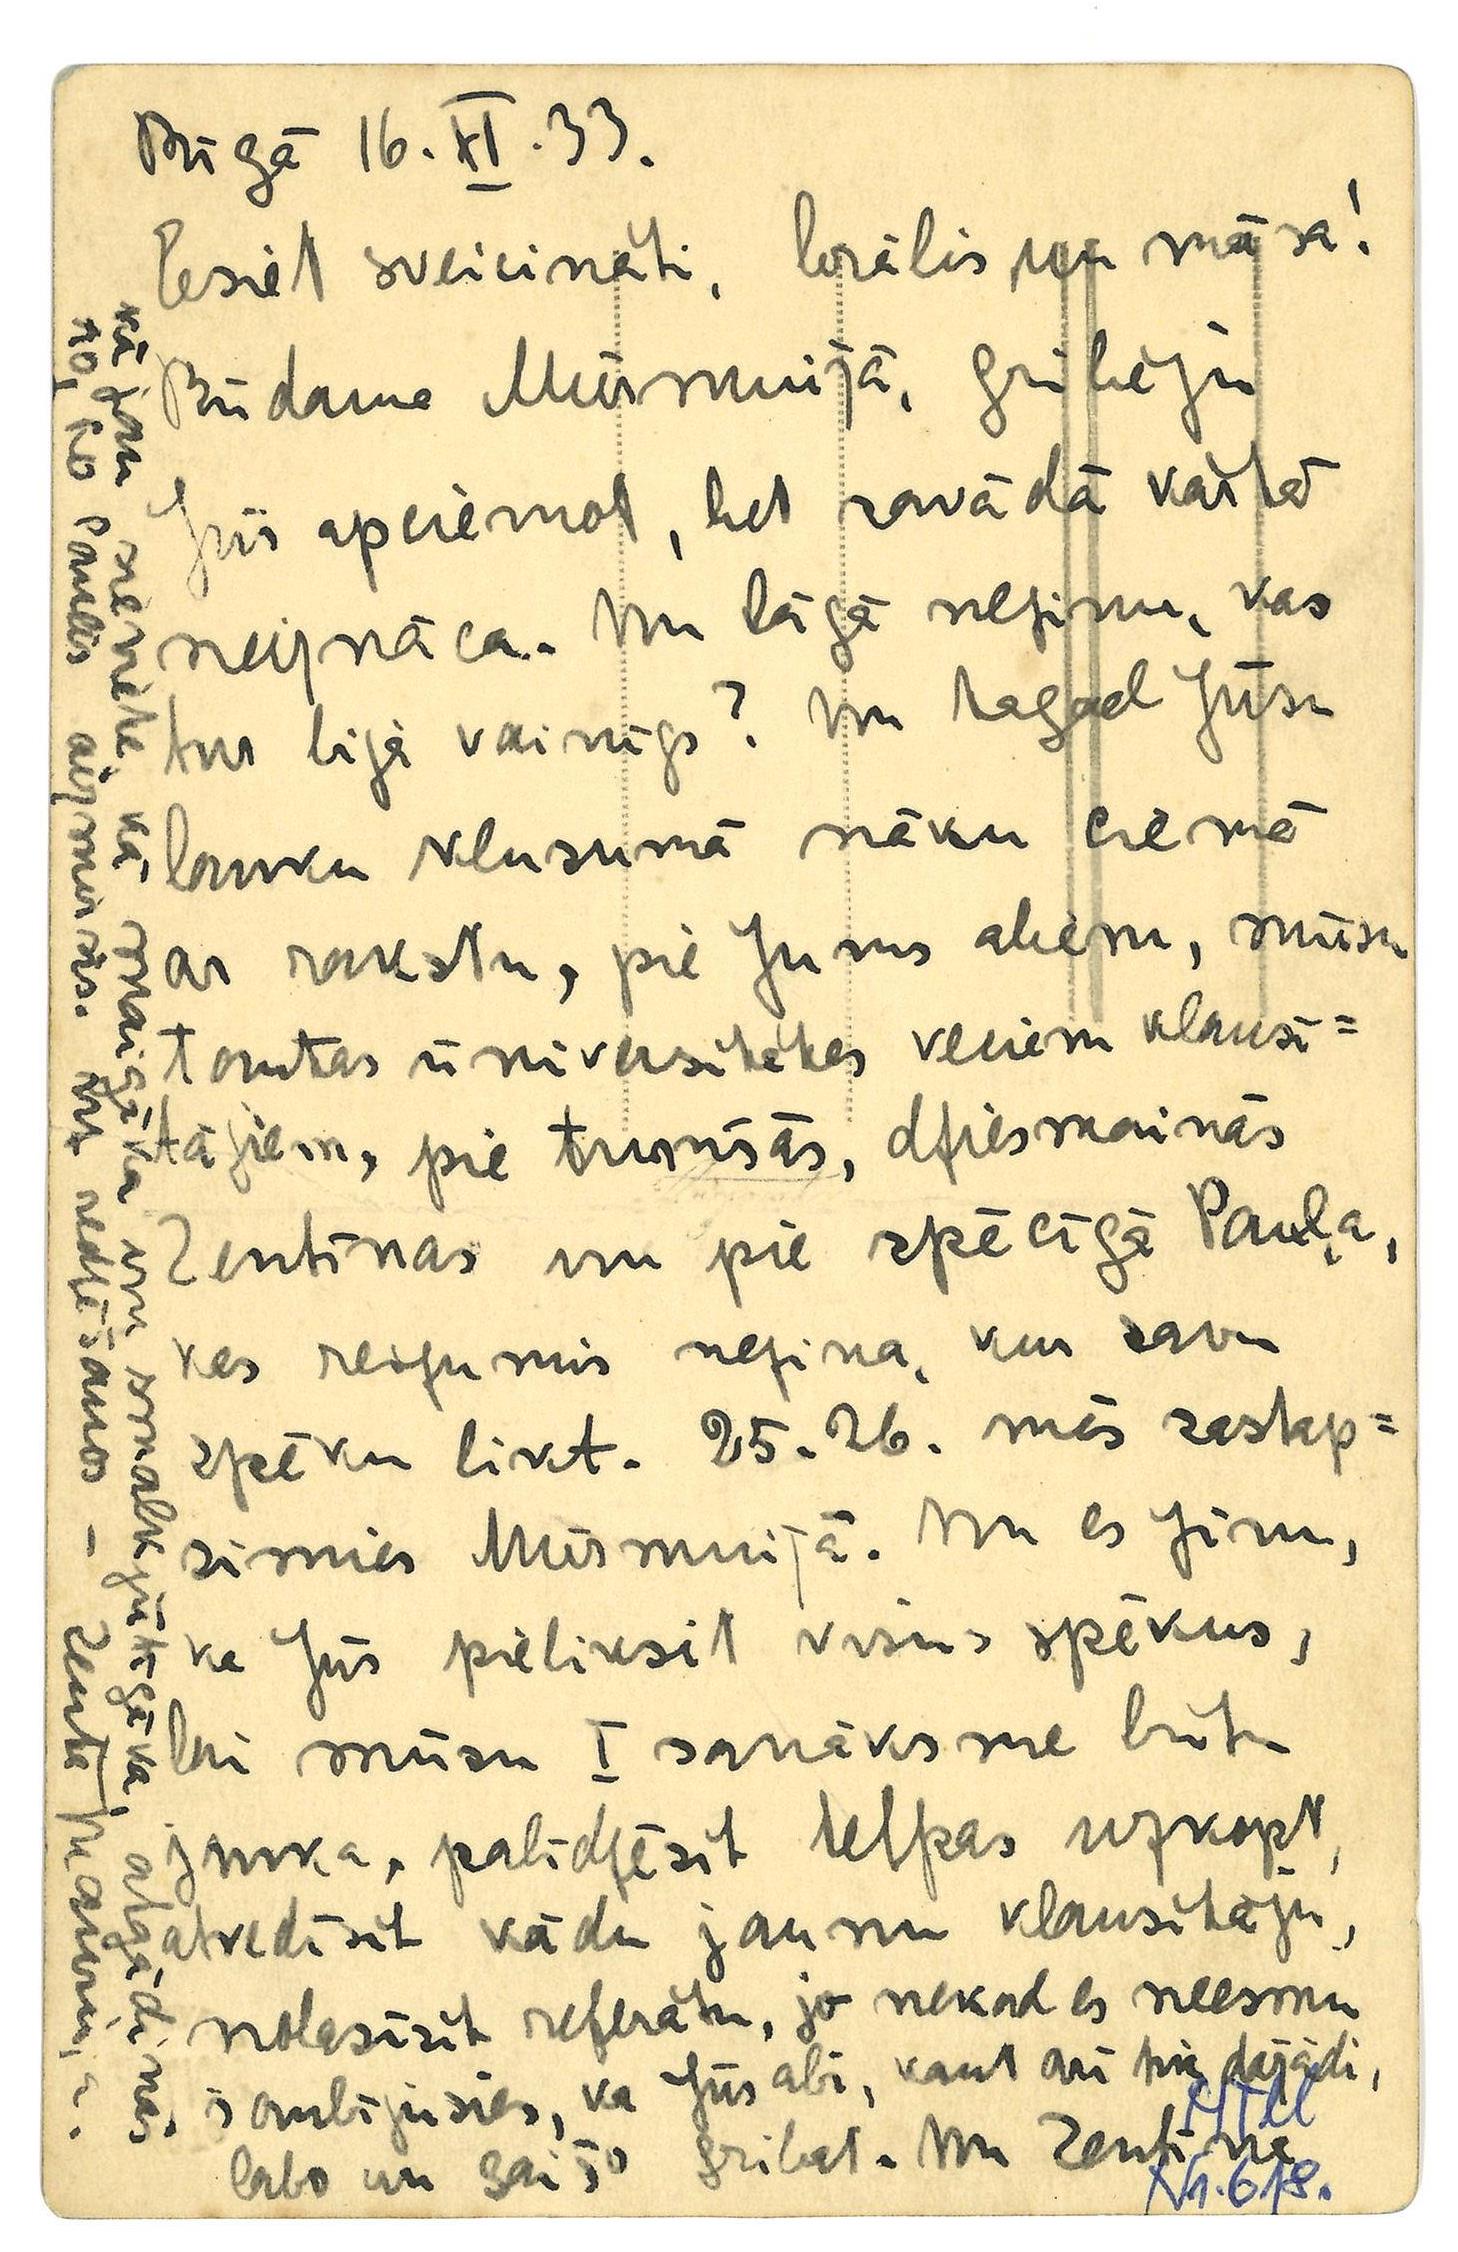 Rīgā 16. XI. 33.
Esiet sveicināti, brālis un māsa!
Būdama Mūrmuižā, gribēju
Jūs apciemot, bet savādā kārtā
neiznāca. Un lāgā nezinu, kas
tur bija vainīgs? Un tagad Jūsu
lauku klusumā nāku ciemā
ar rakstu, pie Jums abiem, mūsu
tautas ūniversitātes veciem klausī=
tājiem, pie turnīšās, dziesmainās
Zentīnas un pie spēcīgā Pauļa,
kas reizumis nezina, kur savu
spēku likt. 25.-26. mēs sastap=
simies Mūrmuižā. Un es zinu,
ka Jūs pieliksit visus spēkus,
lai mūsu I sanāksme būtu
jauka, palīdzēsit telpas uzkopt,
atvedīsit kādu jaunu klausītāju,
nolasīsit referātu, jo nekad es neesmu
šaubījusies, ka Jūs abi, kaut arī tik dažādi,
labo un gaišo gribat. Un Zentīna
kā jau sieviete, kā maigāka un smalkjūtīgāka, atgādinās
to, ko Paulis aizmirsīs. Uz redzēšanos – Zenta Mauriņa.
RTMM
Nr. 618.